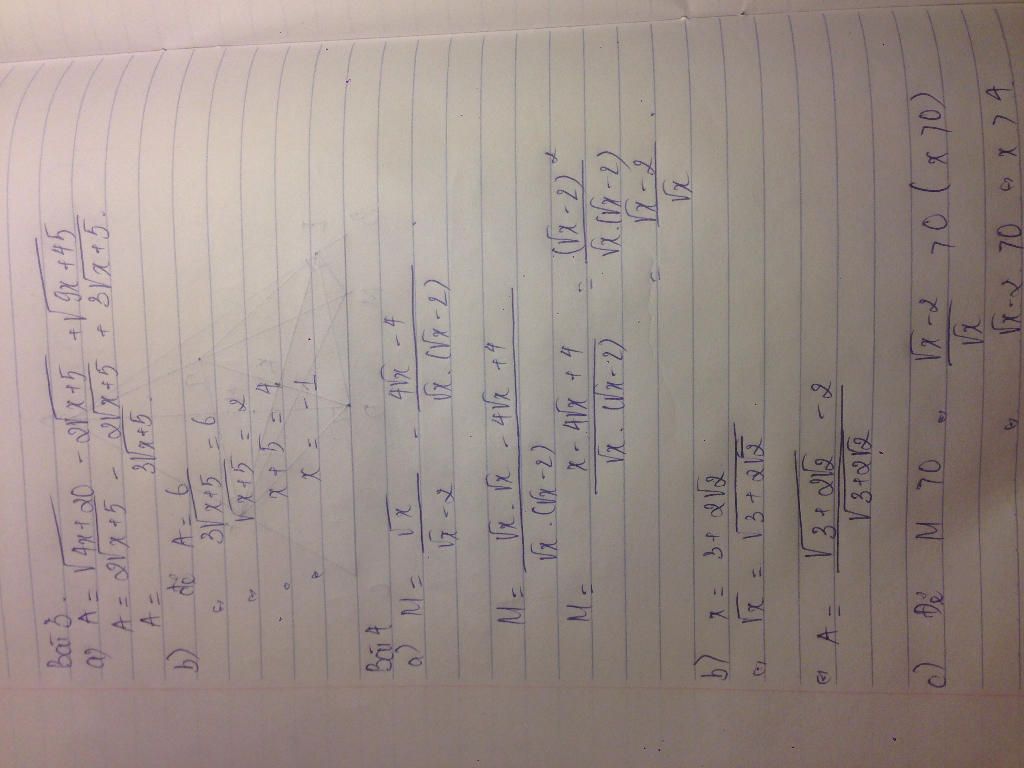 Bài 3.
a) A = √(4x+20) - 2√(x+5) + √(9x+45)
A = 2√(x+5) - 2√(x+5) + 3√(x+5).
A = 3√(x+5)
b) để A = 6
⇔ 3√(x+5) = 6
⇔ √(x+5) = 2
⇔ x + 5 = 4
⇔ x = -1
Bài 4
a) M = √x / (√x - 2) - (4√x - 4) / (√x.(√x - 2))
M = (√x.√x - 4√x + 4) / (√x.(√x - 2))
M = (x - 4√x + 4) / (√x.(√x - 2)) = (√x - 2)² / (√x.(√x - 2))
= (√x - 2) / √x.
b) x = 3 + 2√2
⇔ √x = √(3 + 2√2)
⇔ A = (√(3+2√2) - 2) / √(3+2√2)
c) Để M >0 ⇔ (√x - 2) / √x >0 (x >0)
√x - 2 >0 ⇔ x > 4
⇔